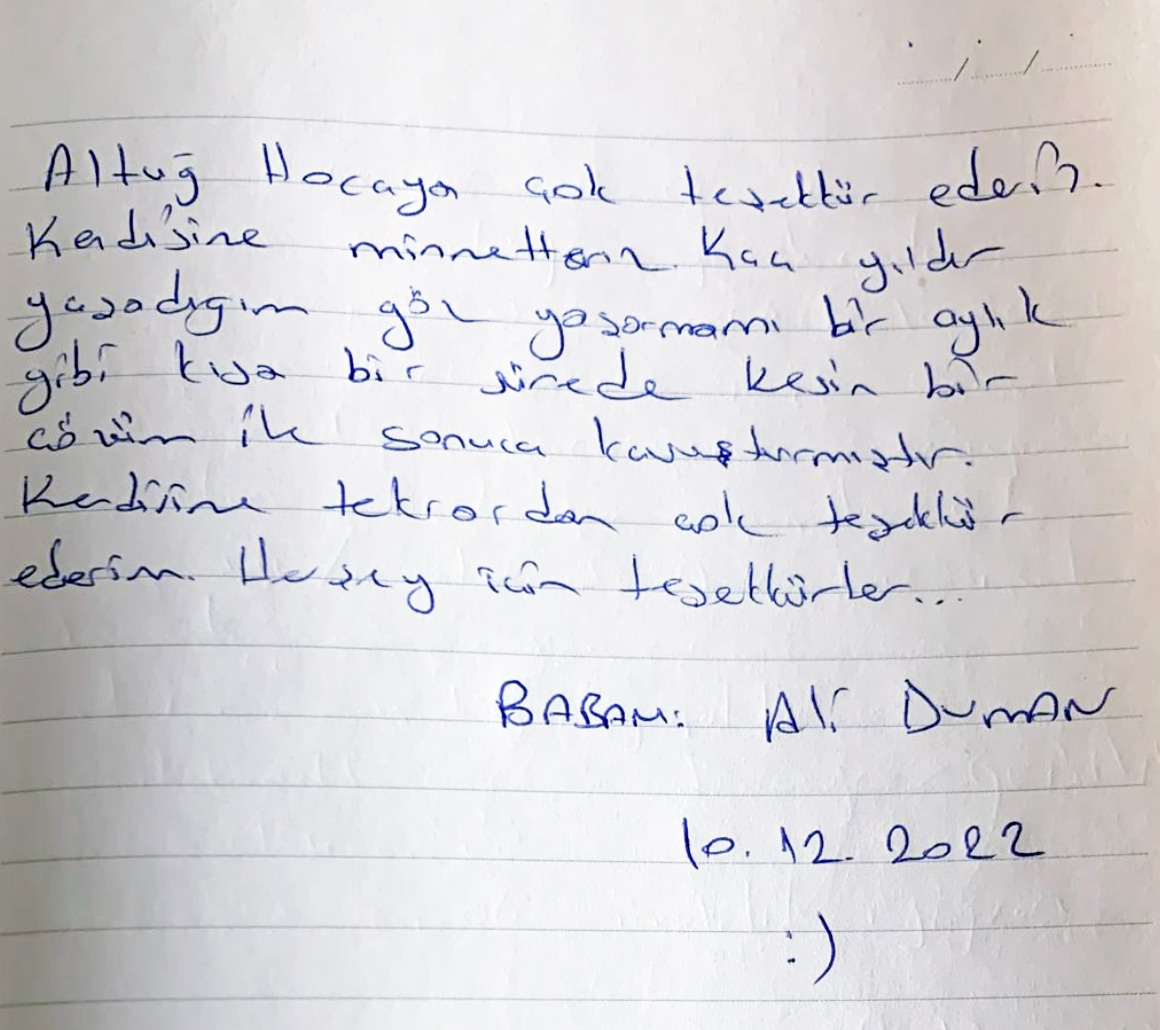 Altuğ Hocaya çok teşekkür ederim.
Kendisine minnettarım. Kaç yıldır
yaşadığım göz yaşarmamı bir aylık
gibi kısa bir sürede kesin bir
çözüm ile sonuca kavuşturmuştur.
Kendisine tekrardan çok teşekkür
ederim. Herşey için teşekkürler...
BABAM: Ali DUMAN
10.12.2022
:)